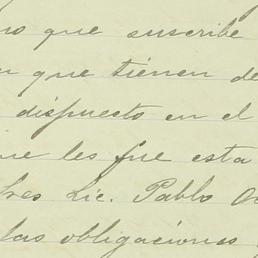 no que suscribe
que tienen de
dispuesto en el
ue les fue esta
Lic. Pablo
las obligaciones